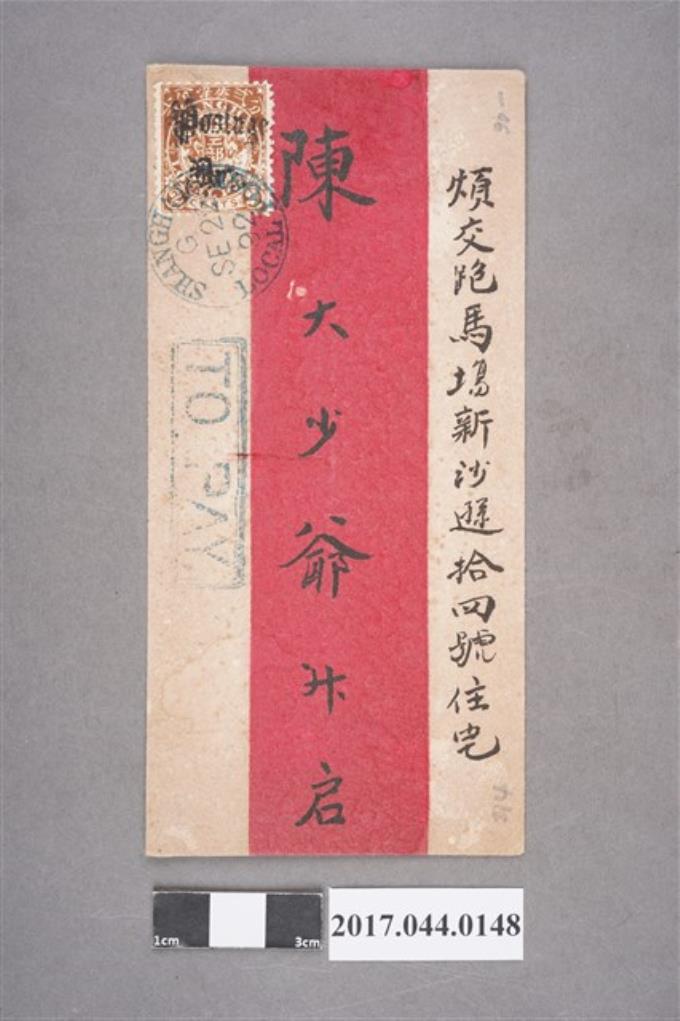 煩交跑馬場新沙遜拾四號住宅
陳大少爺升启
Postage
Due
SHANGHAI
LOCAL
G
SE 2
92
TO PAY
1cm
3cm
2017.044.0148